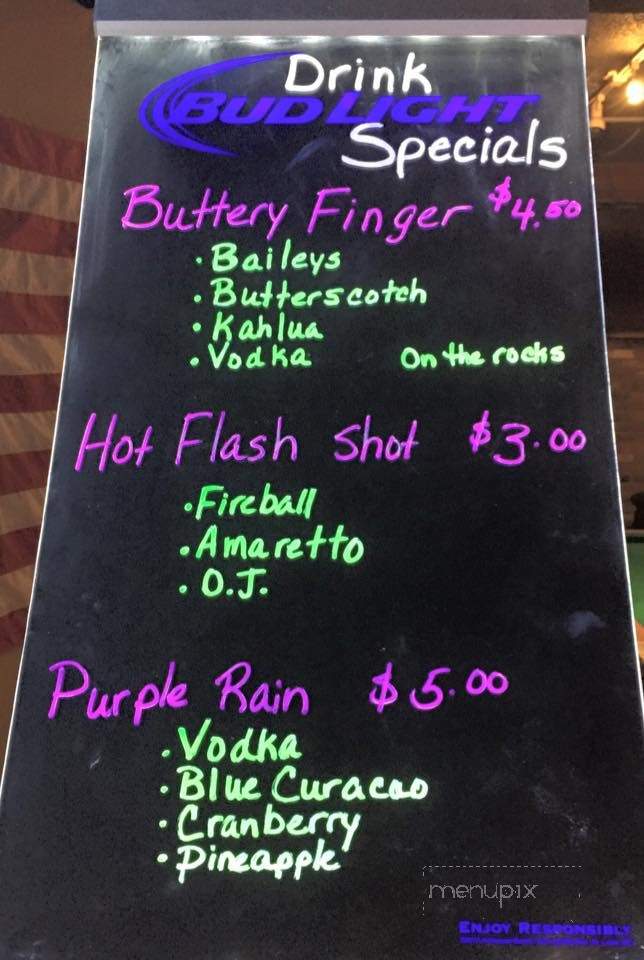 Drink
BUD LIGHT
Specials
Buttery Finger $4.50
· Baileys
· Butterscotch
· Kahlua
· Vodka On the rocks
Hot Flash Shot $3.00
· Fireball
· Amaretto
· O.J.
Purple Rain $5.00
· Vodka
· Blue Curacao
· Cranberry
· Pineapple
menupix
ENJOY RESPONSIBLY